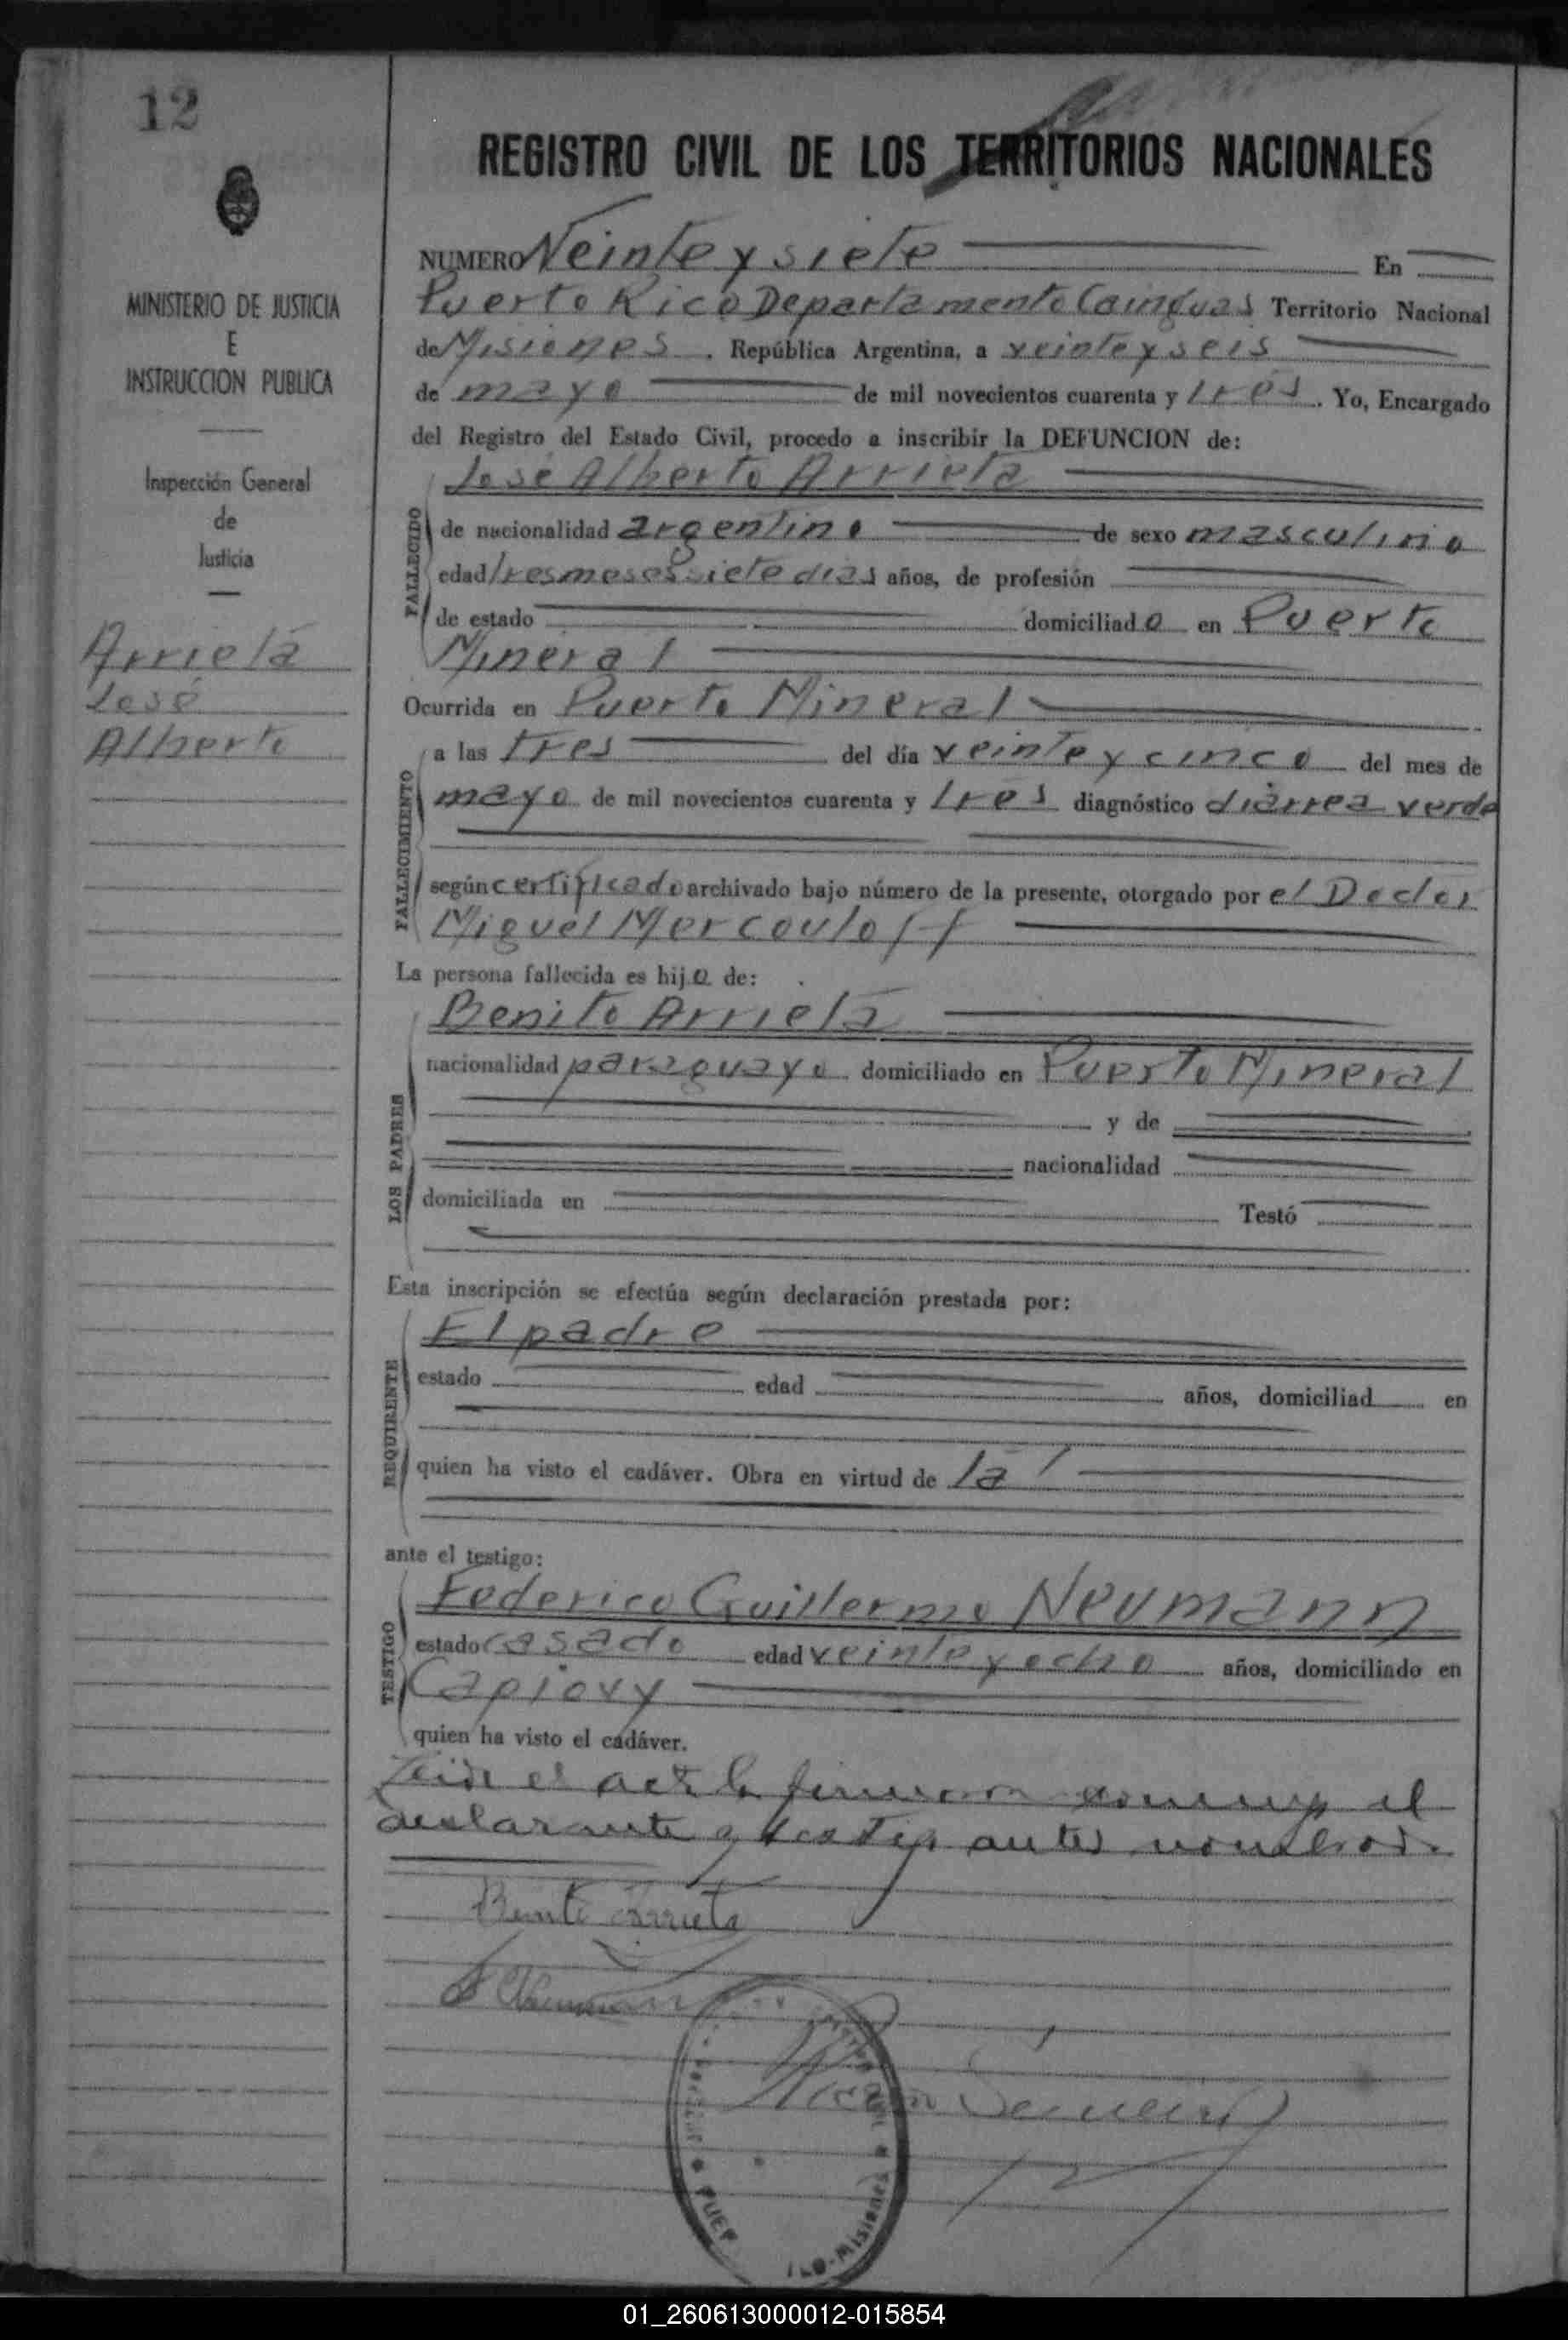 12
REGISTRO CIVIL DE LOS TERRITORIOS NACIONALES
MINISTERIO DE JUSTICIA
E
INSTRUCCION PUBLICA
Inspección General
de
Justicia
Arrieta
José
Alberto
NUMERO Veinte y siete En
Puerto Rico Departamento Cainguas Territorio Nacional
de Misiones. República Argentina, a veinte y seis
de mayo de mil novecientos cuarenta y tres. Yo, Encargado
del Registro del Estado Civil, procedo a inscribir la DEFUNCION de:
José Alberto Arrieta
FALLECIDO
de nacionalidad argentino de sexo masculino
edad tres meses siete dias años, de profesión
de estado domiciliado en Puerto
Mineral
Ocurrida en Puerto Mineral
FALLECIMIENTO
a las tres del día veinte y cinco del mes de
mayo de mil novecientos cuarenta y tres diagnóstico diarrea verde
según certificado archivado bajo número de la presente, otorgado por el Doctor
Miguel Mercouloff
La persona fallecida es hijo de:
LOS PADRES
Benito Arrieta
nacionalidad paraguayo domiciliado en Puerto Mineral
y de
nacionalidad
domiciliada en Testó
Esta inscripción se efectúa según declaración prestada por:
REQUIRENTE
El padre
estado edad años, domiciliad en
quien ha visto el cadáver. Obra en virtud de la
ante el testigo:
TESTIGO
Federico Guillermo Neumann
estado casado edad veinte y ocho años, domiciliado en
Capiovy
quien ha visto el cadáver.
el acta la firmaron conmigo el
declarante y testigo antes nombrado.
Benito Arrieta
Neumann
PUER
ICO-Misiones
01_260613000012-015854